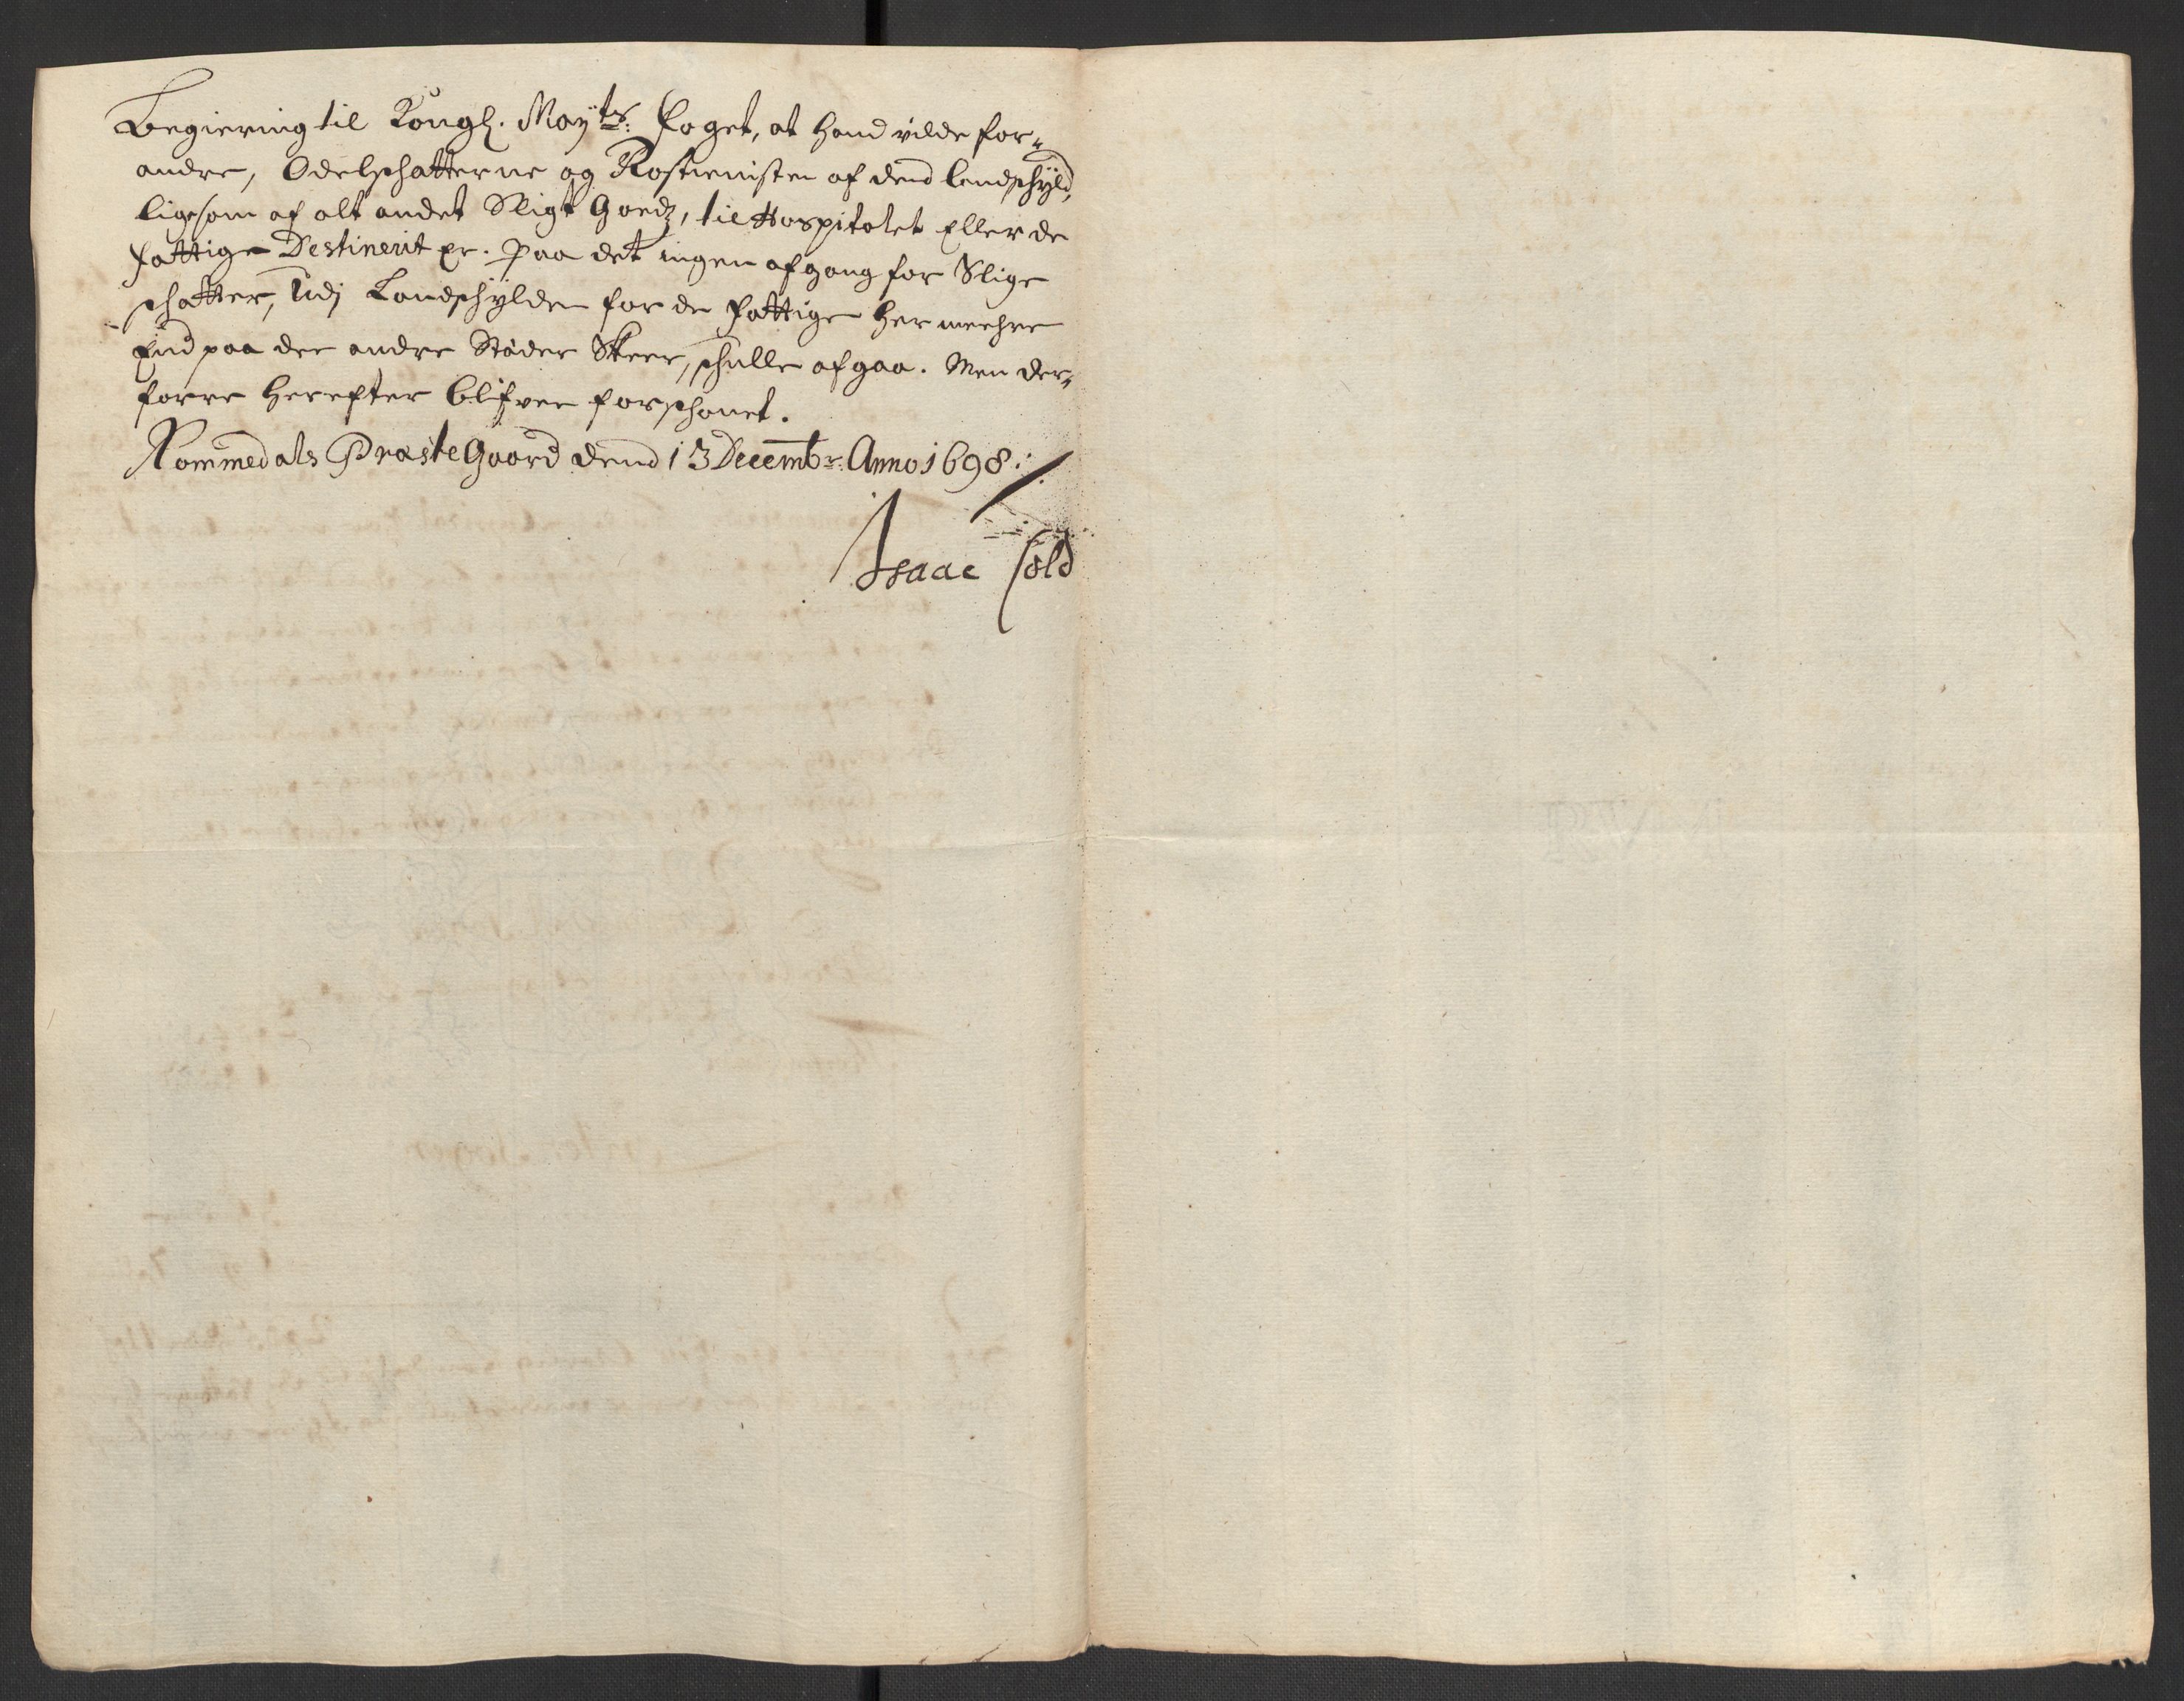 Begiering til Kongl. Mayts: foget, at hand vilde for„
andre, Odelschatterne og Rostienisten af dend landschyld,
ligesom af alt andet Sligt Goedz, til Hospitalet Eller de
fattige Destinerit er. Paa det ingen afgang for Slige
schatter, Udj Landschylden for de fattige her meehre
End paa dee andre Stæder Skeer, schulle afgaa. Men der„
forre herefter blifver forschonet.
Rommedals Præste Gaard dend 13 Decembr: Anno 1698 ./.
Isaac Cold